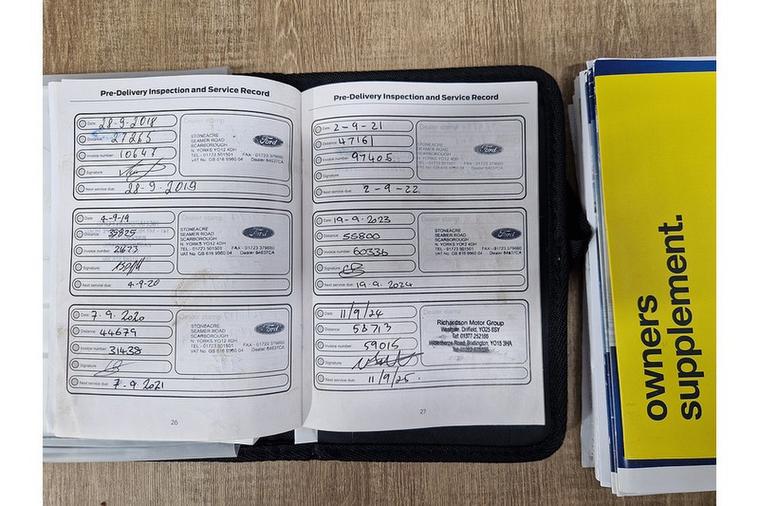 Pre-Delivery Inspection and Service Record
Date: 28-9-2018
Distance: 27265
Invoice number: 10647
Signature:
Next service due: 28-9-2019
Dealer stamp
STONEACRE
SEAMER ROAD
SCARBOROUGH
N. YORKS YO12 4DH
TEL - 01723 501501 FAX - 01723 379660
VAT No GB 616 9960 04 Dealer 64637CA
Ford
Date: 4-9-19
Distance: 35825
Invoice number: 21673
Signature:
Next service due: 4-9-20
Dealer stamp
STONEACRE
SEAMER ROAD
SCARBOROUGH
N. YORKS YO12 4DH
TEL - 01723 501501 FAX - 01723 379660
VAT No GB 616 9960 04 Dealer 64637CA
Ford
Date: 7-9-2020
Distance: 44679
Invoice number: 31438
Signature:
Next service due: 7-9-2021
STONEACRE
SEAMER ROAD
SCARBOROUGH
N. YORKS YO12 4DH
TEL - 01723 501501 FAX - 01723 379660
VAT No GB 616 9960 04 Dealer 64637CA
Ford
26
Pre-Delivery Inspection and Service Record
Date: 2-9-21
Distance: 47161
Invoice number: 97405
Signature:
Next service due: 2-9-22
Dealer stamp
STONEACRE
SEAMER ROAD
SCARBOROUGH
N. YORKS YO12 4DH
TEL - 01723 501501 FAX - 01723 379660
VAT No GB 616 9960 04 Dealer 64637CA
Ford
Date: 19-9-2023
Distance: 55800
Invoice number: 60336
Signature:
Next service due: 19-9-2024
Dealer stamp
STONEACRE
SEAMER ROAD
SCARBOROUGH
N. YORKS YO12 4DH
TEL - 01723 501501 FAX - 01723 379660
VAT No GB 616 9960 04 Dealer 64637CA
Ford
Date: 11/9/24
Distance: 58713
Invoice number: 59015
Signature:
Next service due: 11/9/25.
Richardson Motor Group
Westgate, Driffield, YO25 6SY
Tel: 01377 252166
Road, Bridlington, YO15 3HA
27
owners
supplement.